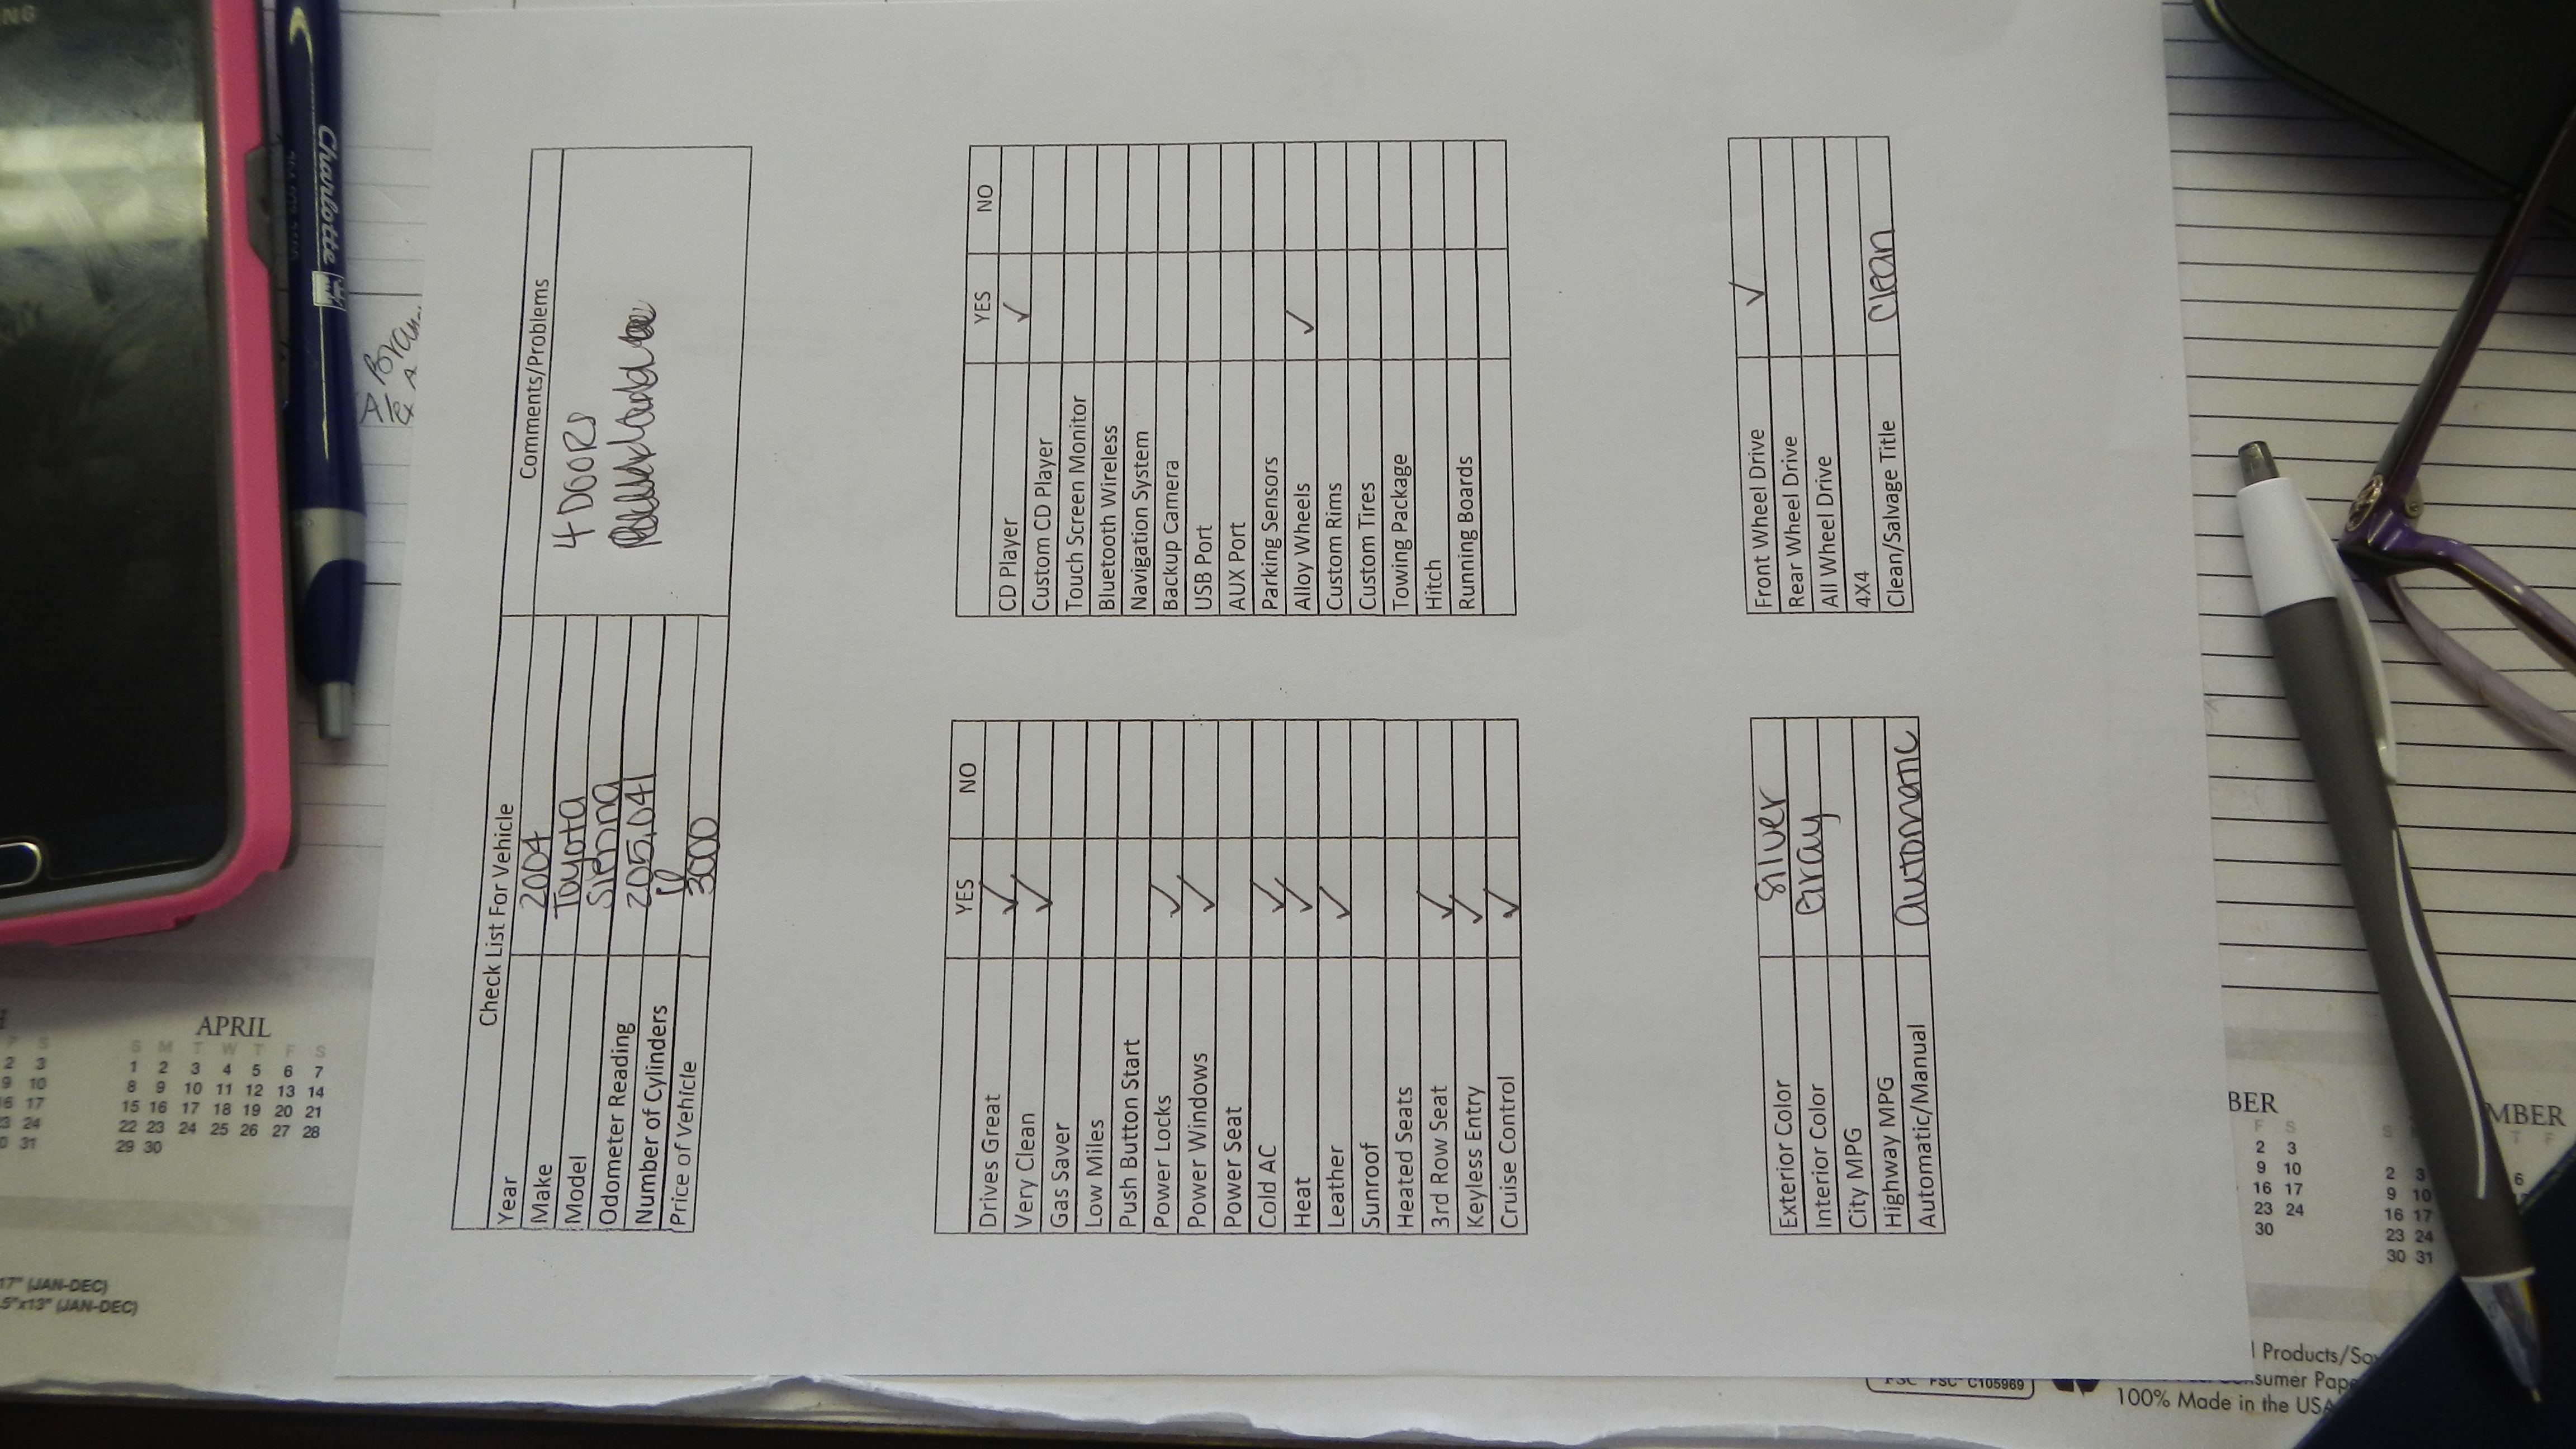 17" (JAN-DEC)
.5"x13" (JAN-DEC)
2 3
9 10
16 17
23 24
30 31
APRIL
S M T W T F S
1 2 3 4 5 6 7
8 9 10 11 12 13 14
15 16 17 18 19 20 21
22 23 24 25 26 27 28
29 30
NG
Charlotte
Alex A
Check List For Vehicle
Comments/Problems
Year 2004
Make Toyota
Model Sienna
Odometer Reading 205,041
Number of Cylinders 6
Price of Vehicle 3000
4 DOORS
YES NO
Drives Great ✓
Very Clean ✓
Gas Saver
Low Miles
Push Button Start
Power Locks ✓
Power Windows ✓
Power Seat
Cold AC ✓
Heat ✓
Leather ✓
Sunroof
Heated Seats
3rd Row Seat ✓
Keyless Entry ✓
Cruise Control ✓
YES NO
CD Player ✓
Custom CD Player
Touch Screen Monitor
Bluetooth Wireless
Navigation System
Backup Camera
USB Port
AUX Port
Parking Sensors
Alloy Wheels ✓
Custom Rims
Custom Tires
Towing Package
Hitch
Running Boards
Exterior Color Silver
Interior Color Gray
City MPG
Highway MPG
Automatic/Manual automatic
Front Wheel Drive ✓
Rear Wheel Drive
All Wheel Drive
4X4
Clean/Salvage Title Clean
FSC C105969
100% Made in the USA
sumer Pap
l Products/So
BER
F S
2 3
9 10
16 17
23 24
30
S
2 3
9 10
16 17
23 24
30 31
MBER
T F
6